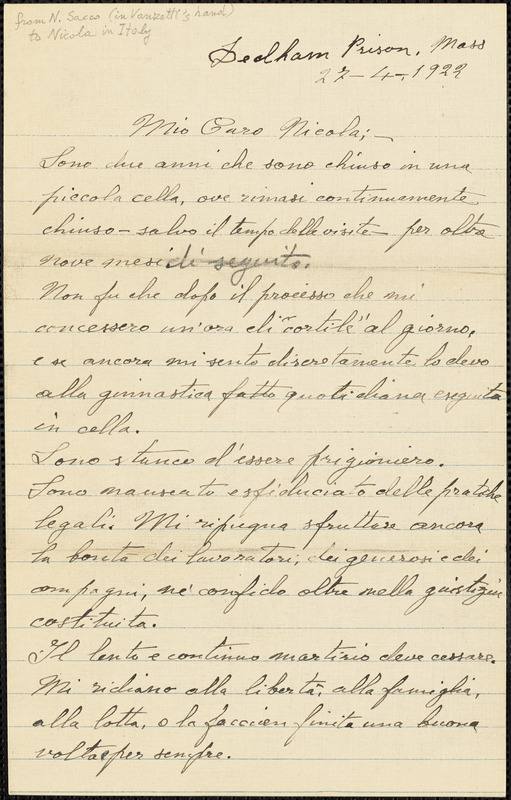 from N. Sacco (in Vanzetti's hand)
to Nicola in Italy
Dedham Prison, Mass
27-4-, 1922
Mio Caro Nicola; —
Sono due anni che sono chiuso in una
piccola cella, ove rimasi continuamente
chiuso - salvo il tempo delle visite - per oltre
nove mesi di seguito.
Non fu che dopo il processo che mi
concessero un'ora di "cortile" al giorno,
e se ancora mi sento discretamente lo devo
alla ginnastica fatto quotidiana eseguita
in cella.
Sono stanco d'essere prigioniero.
Sono nauseato e sfiduciato delle pratiche
legali. Mi ripugna sfruttare ancora
la bontà dei lavoratori, dei generosi e dei
compagni, nè confido oltre nella giustizia
costituita.
Il lento e continuo martirio deve cessare.
Mi ridiano alla libertà, alla famiglia,
alla lotta, o la faccian finita una buona
volta e per sempre.